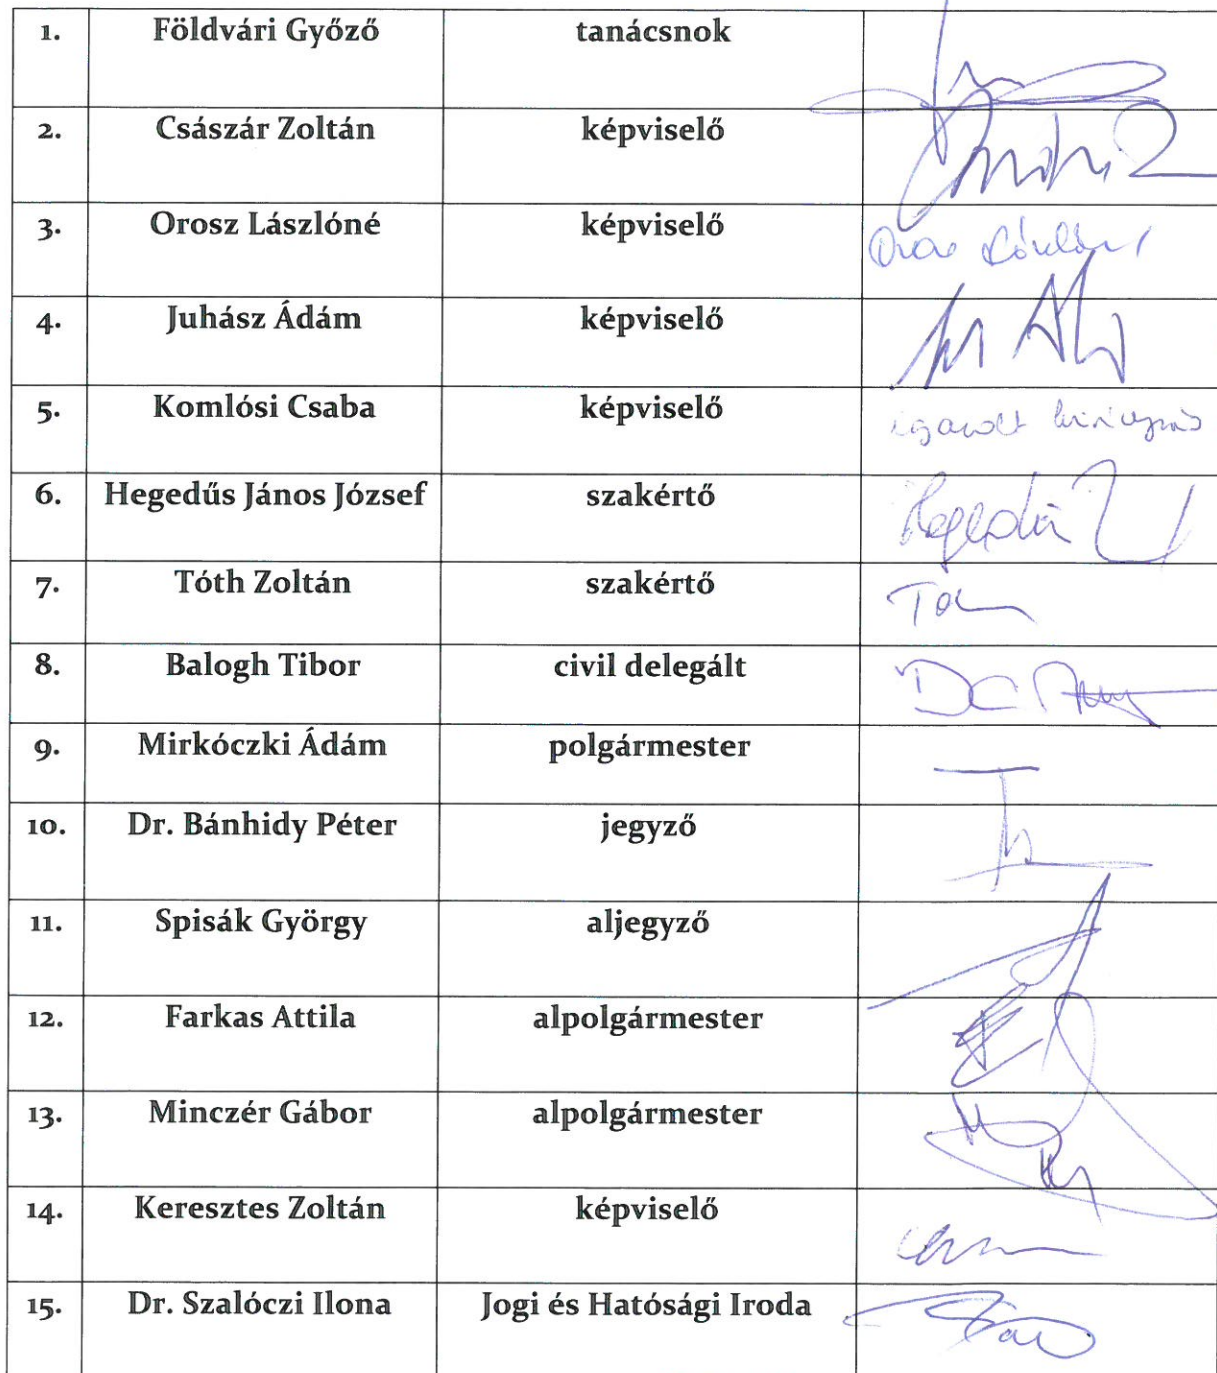 1. Földvári Győző tanácsnok
2. Császár Zoltán képviselő
3. Orosz Lászlóné képviselő
4. Juhász Ádám képviselő
5. Komlósi Csaba képviselő igazolt hiányzás
6. Hegedűs János József szakértő Hegedűs
7. Tóth Zoltán szakértő
8. Balogh Tibor civil delegált
9. Mirkóczki Ádám polgármester
10. Dr. Bánhidy Péter jegyző
11. Spisák György aljegyző
12. Farkas Attila alpolgármester
13. Minczér Gábor alpolgármester
14. Keresztes Zoltán képviselő
15. Dr. Szalóczi Ilona Jogi és Hatósági Iroda